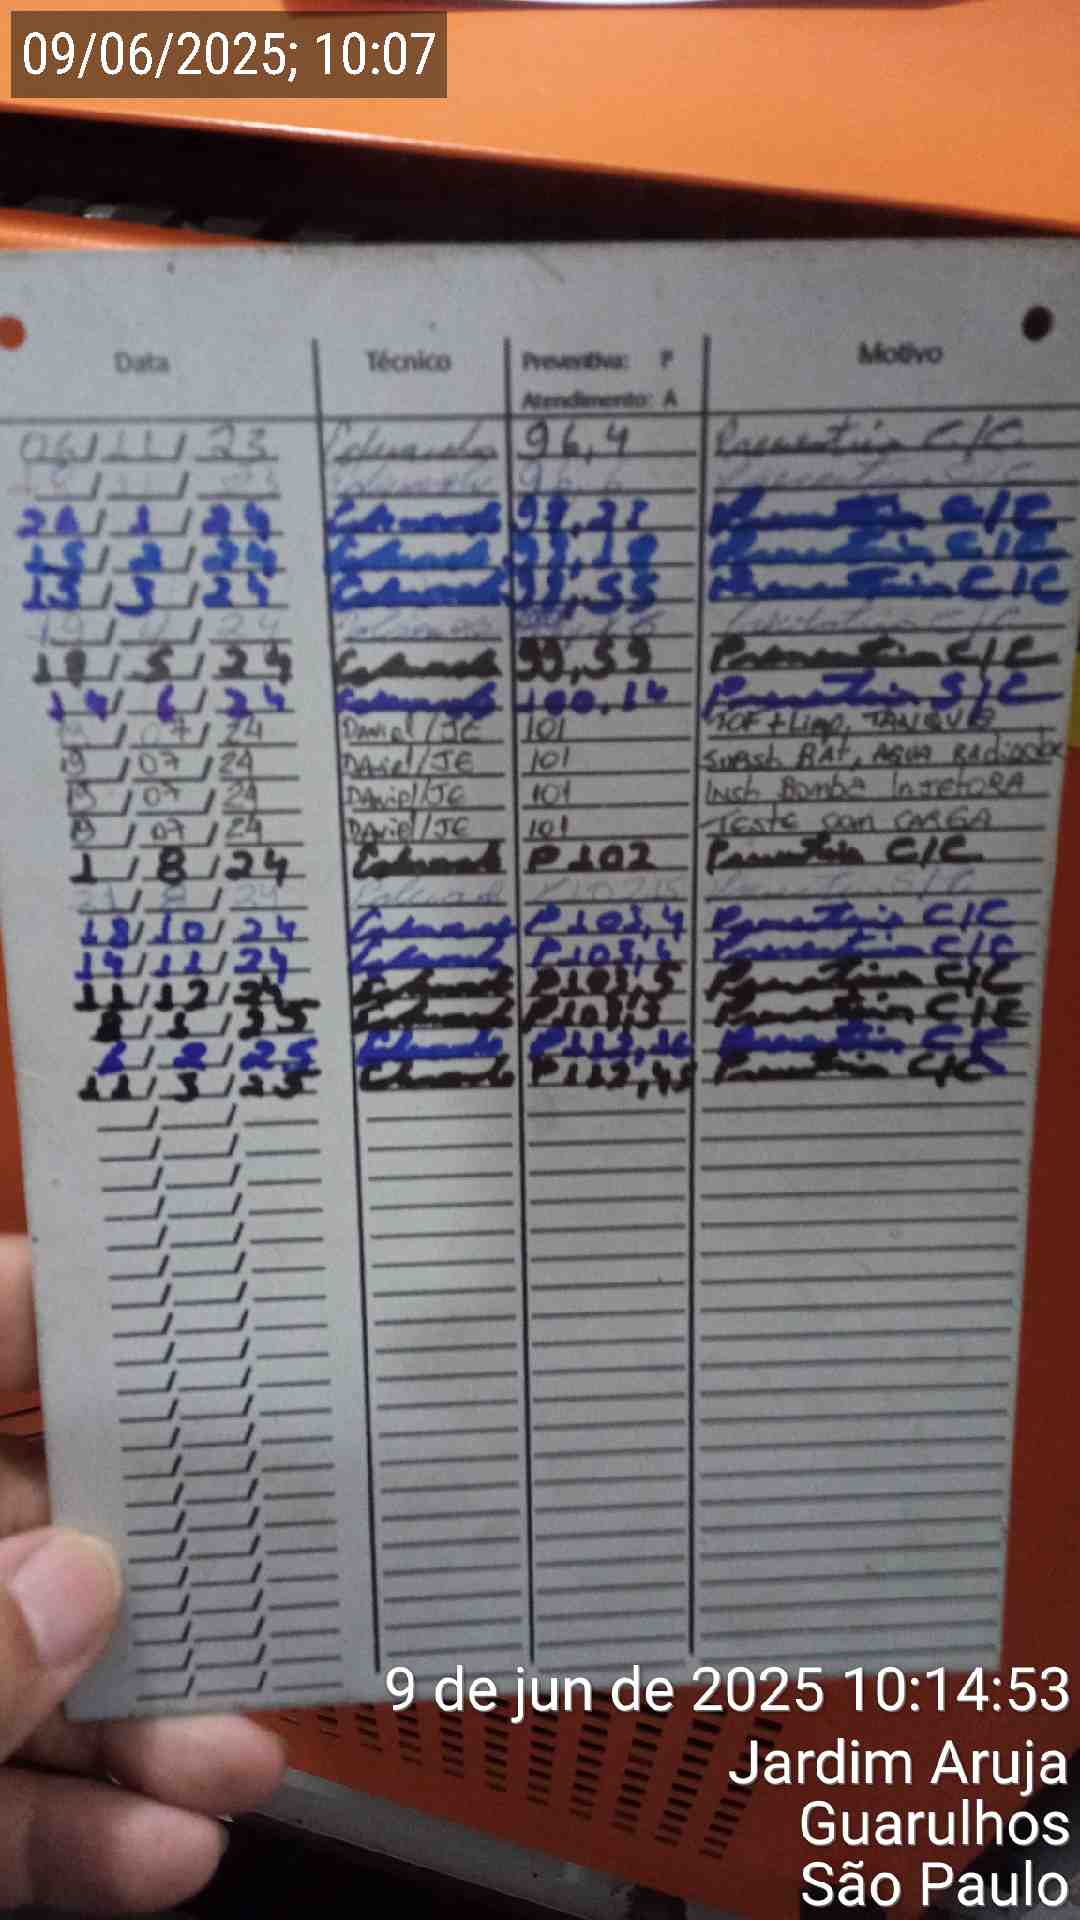 09/06/2025; 10:07
Data Técnico Preventiva: P Motivo
Atendimento: A
06/11/23 Eduardo 96,4 Preventiva C/C
24 Eduardo Preventiva C/C
15/2/24 Eduardo Preventiva C/C
15/3/24 Eduardo 99,55 Preventiva C/C
24
18/5/24 Eduardo 99,59 Preventiva C/C
14/6/24 Eduardo 100,14 Preventiva S/C
07/24 Daniel/JE 101 TOF + Limp, TANQUE
19/07/24 Daniel/JE 101 Subst BAt, AGUA RADiador
19/07/24 Daniel/JE 101 Inst Bomba InJetORA
19/07/24 Daniel/JE 101 TESTE com CARGA
1/8/24 Eduardo P 102 Preventiva C/C
18/10/24 Eduardo P 103,4 Preventiva C/C
14/11/24 Eduardo Preventiva C/C
11/12/24 Eduardo P 103,5 Preventiva C/C
1/25 Eduardo Preventiva C/C
2/25 Eduardo Preventiva C/C
11/3/25 Eduardo P 112,45 Preventiva C/C
9 de jun de 2025 10:14:53
Jardim Aruja
Guarulhos
São Paulo